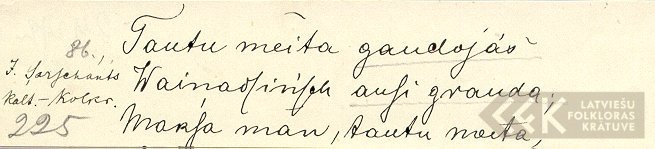 86.
J.
Kalt.-Kolkr.
225
Tautu mēita gaudojās
Wainadsiņsch auſi grauda;
Makſa man, tautu meita,
LATVIEŠU
FOLKLORAS
KRĀTUVE